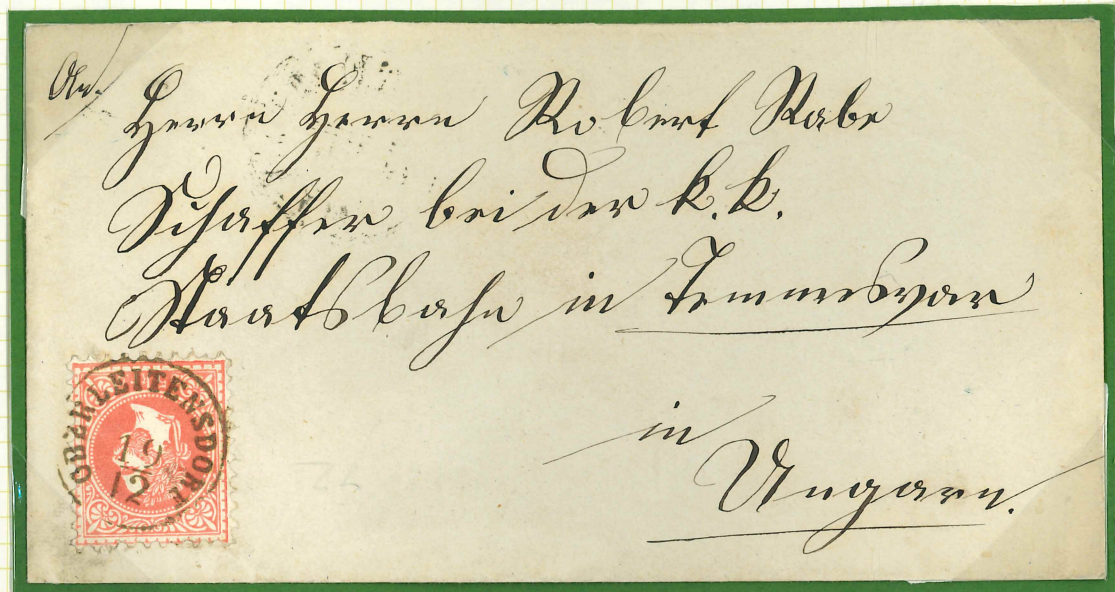 An
Herrn Herrn Robert Rabe
Schaffer bei der k. k.
Staatsbahn in Temmesvar
in
Ungarn.
OBERLEITENSDORF
19
12